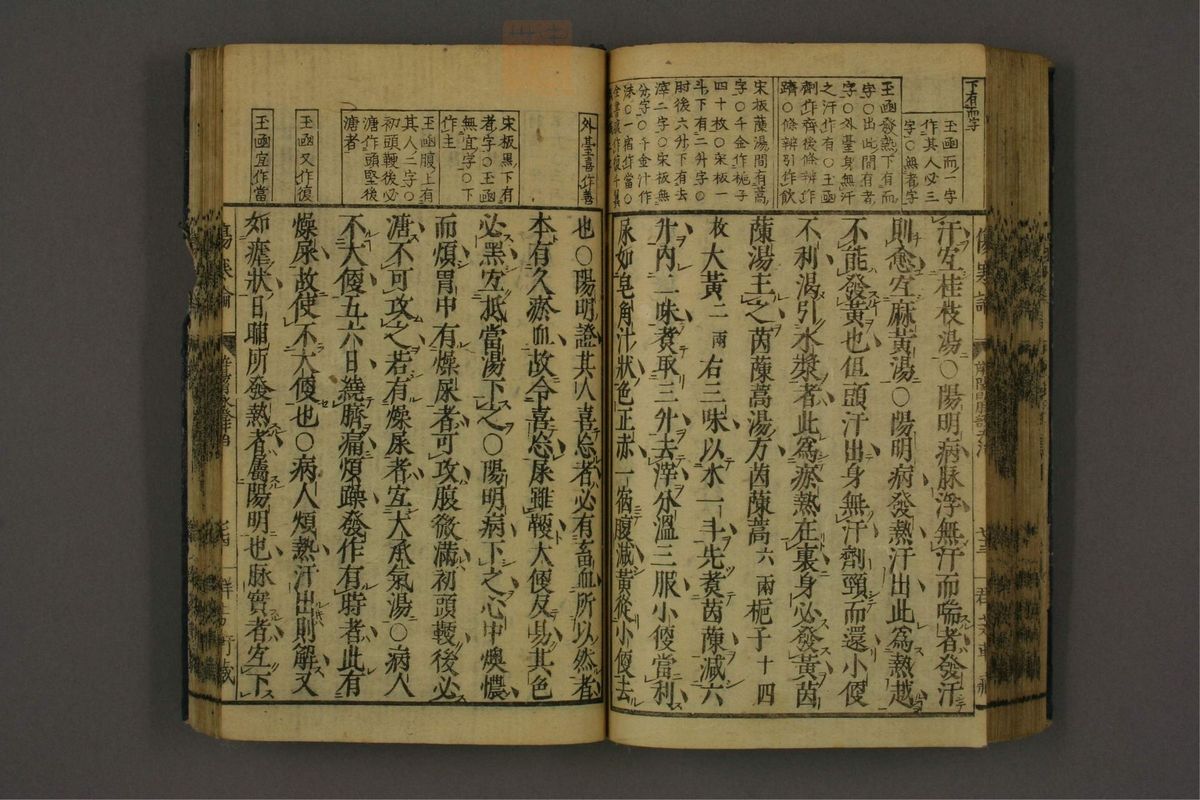 下有而字
玉函而一字
作其人必三
字○無者字
玉函發熱下有而
字○出此間有者
字○外臺身無汗
之汗作有○玉函
劑作齊後條辨作
躋○條辨引作飲
宋板蔯湯間有蒿
字○千金作梔子
四十枚○宋板一
斗下有二升字○
肘後六升下有去
滓二字○宋板無
分字○千金汁作
沫○一宿作當○
汗宜桂枝湯○陽明病脉浮無汗而喘者發汗
則愈宜麻黃湯○陽明病發熱汗出此爲熱越
不能發黃也但頭汗出身無汗劑頸而還小便
不利渴引水漿者此爲瘀熱在裏身必發黃茵
蔯湯主之茵蔯蒿湯方茵蔯蒿六兩梔子十四
枚大黃二兩右三味以水一斗先煮茵蔯減六
升內二味煮取三升去滓分溫三服小便當利
尿如皂角汁狀色正赤一宿腹減黃從小便去
外臺喜作善
宋板黑下有
者字○玉函
無宜字○下
作主
玉函腹上有
其人二字○
初頭鞕後必
溏作頭堅後
溏者
玉函又作復
玉函宜作當
也○陽明證其人喜忘者必有畜血所以然者
本有久瘀血故令喜忘尿雖鞕大便反易其色
必黑宜抵當湯下之○陽明病下之心中懊憹
而煩胃中有燥尿者可攻腹微滿初頭鞕後必
溏不可攻之若有燥尿者宜大承氣湯○病人
不大便五六日繞臍痛煩躁發作有時者此有
燥尿故使不大便也○病人煩熱汗出則解又
如瘧狀日晡所發熱者屬陽明也脉實者宜下
傷寒論